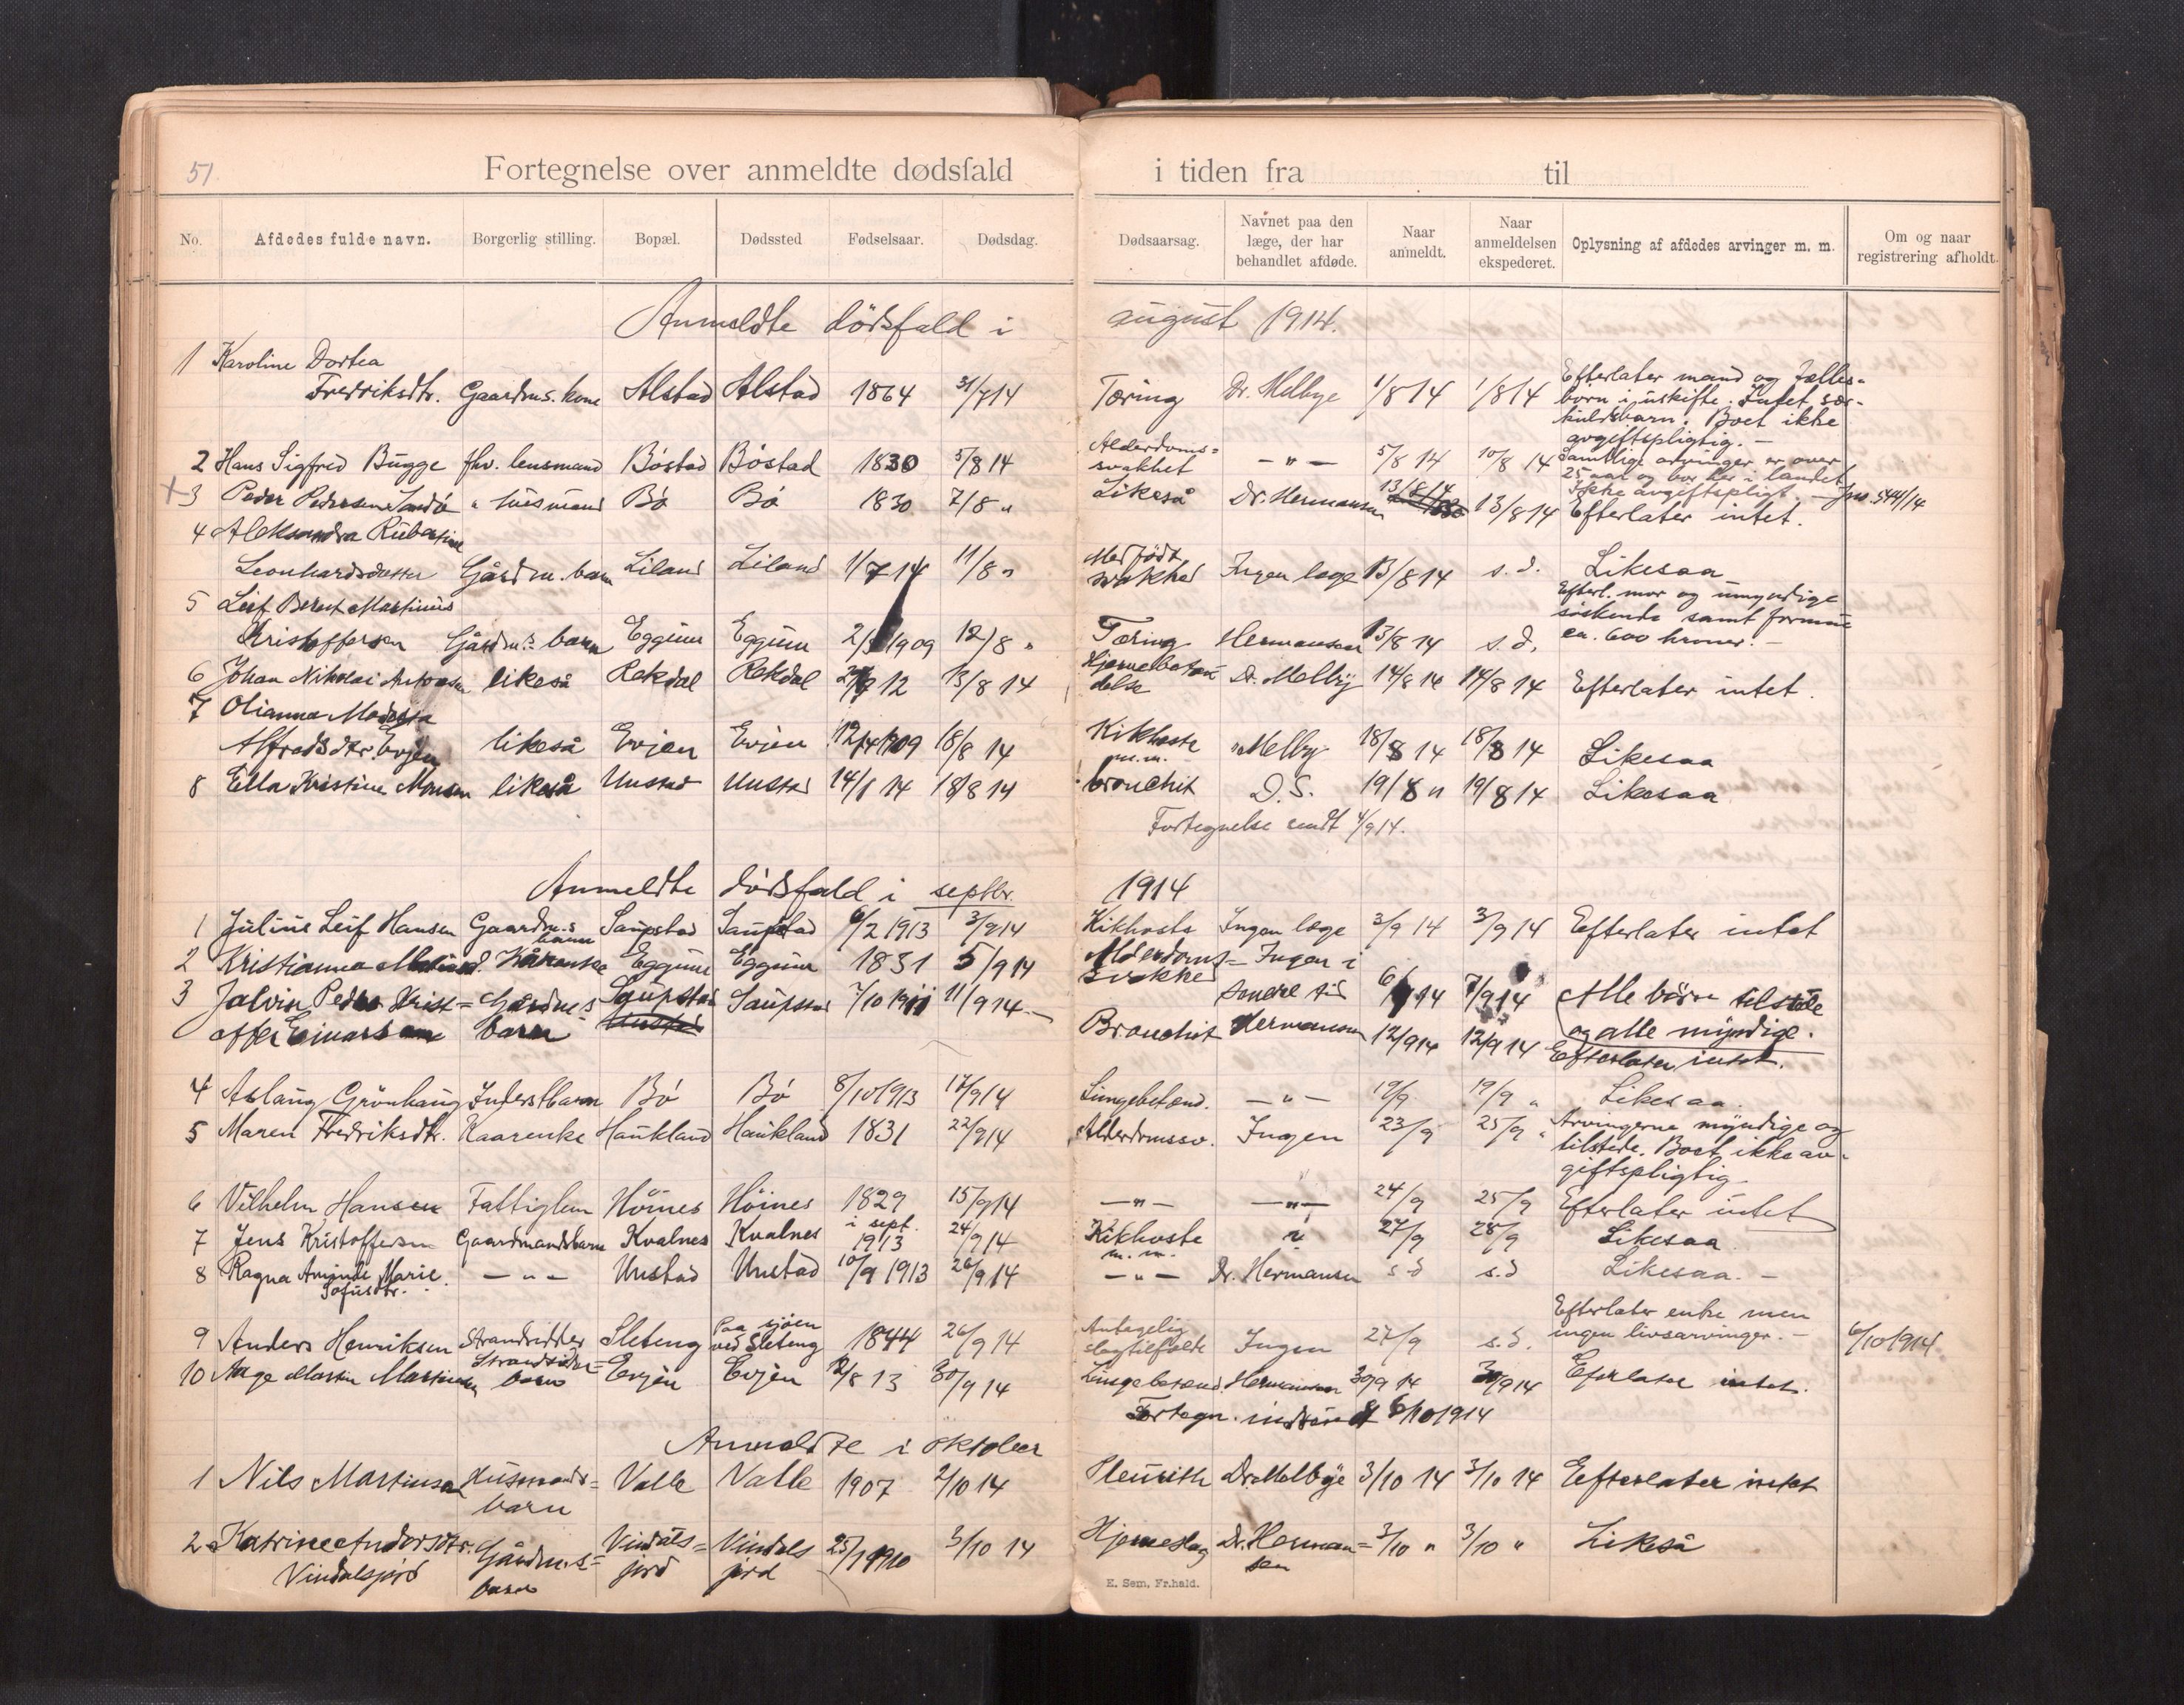 51.
Fortegnelse over anmeldte dødsfald i tiden fra til
No. Afdødes fulde navn. Borgerlig stilling. Bopæl. Dødssted Fødselsaar. Dødsdag. Dødsaarsag. Navnet paa den læge, der har behandlet afdøde. Naar anmeldt. Naar anmeldelsen ekspederet. Oplysning af afdødes arvinger m. m. Om og naar registrering afholdt.
Anmeldte dödsfald i august 1914.
1 Karoline Dortea
Fredriksdtr. Gaardms. kone Alstad Alstad 1864 31/7 14 Tæring Dr. Melbye 1/8 14 1/8 14 Efterlater mand og fælles-
börn i uskifte. Intet sær-
kuldsbarn. Boet ikke
avgiftspligtig. —
2 Hans Sigfred Bugge fhv. lensmand Böstad Böstad 1830 5/8 14 Alderdoms-
svakhet — " — 5/8 14 10/8 14 Samtlige arvinger er over
25 aar og bor her i landet
Ikke avgiftspligt. — Jno. 544/14
3 Peder Pedersen " husmand Bö Bö 1830 7/8 " Likeså Dr. Hermansen 13/8 14 13/8 14 Efterlater intet.
4 Aleksandra
Leonhardsdatter Gårdm. barn Liland Liland 1/7 14 11/8 " Medfödt
svakhed Ingen læge 13/8 14 s. d. Likesaa
5 Leif Bernt Martinus
Kristoffersen Gårdm.s barn Eggum Eggum 1909 12/8 " Tæring Hermansen 13/8 14 s. d. Efterl. mor og umyndige
söskende samt formue
ca. 600 kroner. —
6 Johan Nikolai Antonsen likeså Rekdal Rekdal 12 13/8 14 Hjernebeten-
delse Dr. Melby 14/8 14 14/8 14 Efterlater intet.
7 Olianna
Alfredsdtr. Evjen likeså Evjen Evjen 12/4 1909 18/8 14 Kikhoste
m.m. " Melby 18/8 14 18/8 14 Likesaa
8 Ella Kristine Monsen likeså Unstad Unstad 14/1 14 18/8 14 bronchit D. S. 19/8 " 19/8 14 Likesaa
Fortegnelse sendt 4/9 14.
Anmeldte dödsfald i septbr. 1914
1 Julius Leif Hansen Gaardm.s
barn Saupstad Saupstad 6/2 1913 3/9 14 Kikhoste Ingen læge 3/9 14 3/9 14 Efterlater intet
2 Kristianna Kårenke Eggum Eggum 1831 5/9 14 Alderdoms-
svakhed Ingen i
senere tid 6/9 14 7/9 14 Alle börn tilstede
og alle myndige.
3 Jalvin Peder Krist-
offer Einarsen Gårdm.s
barn Saupstad Saupstad 7/10 1911 11/9 14 — Bronchit Hermansen 12/9 14 12/9 14 Efterlater intet.
4 Aslaug Grönhaug Inderstbarn Bö Bö 8/10 1913 17/9 14 Lungebetænd. — " — 19/9 19/9 " Likesaa.
5 Maren Fredriksdtr. Kaarenke Haukland Haukland 1831 22/9 14 Alderdomssv. Ingen 23/9 25/9 " Arvingerne myndige og
tilstede. Boet ikke av-
giftspligtig.
6 Vilhelm Hansen Fattiglem Höines Höines 1829 15/9 14 — " — — " — 24/9 25/9 Efterlater intet
7 Jens Kristoffersen Gaardmandsbarn Kvalnes Kvalnes i sept.
1913 24/9 14 Kikhoste
m. m. " 27/9 28/9 Likesaa
8 Ragna Amanda Marie
Sofusdtr. — " — Unstad Unstad 10/9 1913 26/9 14 — " — Dr. Hermansen s d s. d Likesaa. —
9 Anders Henriksen Strandsidder Sleteng Paa sjöen
ved Sleteng 1844 26/9 14 Antagelig
slagtilfælde Ingen 27/9 s. d. Efterlater enke men
ingen livsarvinger. — 6/10 1914.
10 Aage Martin Martinsen Strandsidder-
barn Evjen Evjen 12/8 13 30/9 14 Lungebetænd Hermansen 30/9 14 30/9 14 Efterlater intet.
Fortegn. indsendt 6/10 1914
Anmeldte i oktober
1 Nils Martinsen Husmands-
barn Valle Valle 1907 2/10 14 Pleurith Dr. Melbye 3/10 14 3/10 14 Efterlater intet
2 Katrine Andorsdtr.
Vindalsjord Gårdm.s-
barn Vindals-
jord Vindals
jord 25/1 1910 3/10 14 Hjerneslag Dr. Herman-
sen 3/10 " 3/10 " Likeså
E. Sem, Fr.hald.